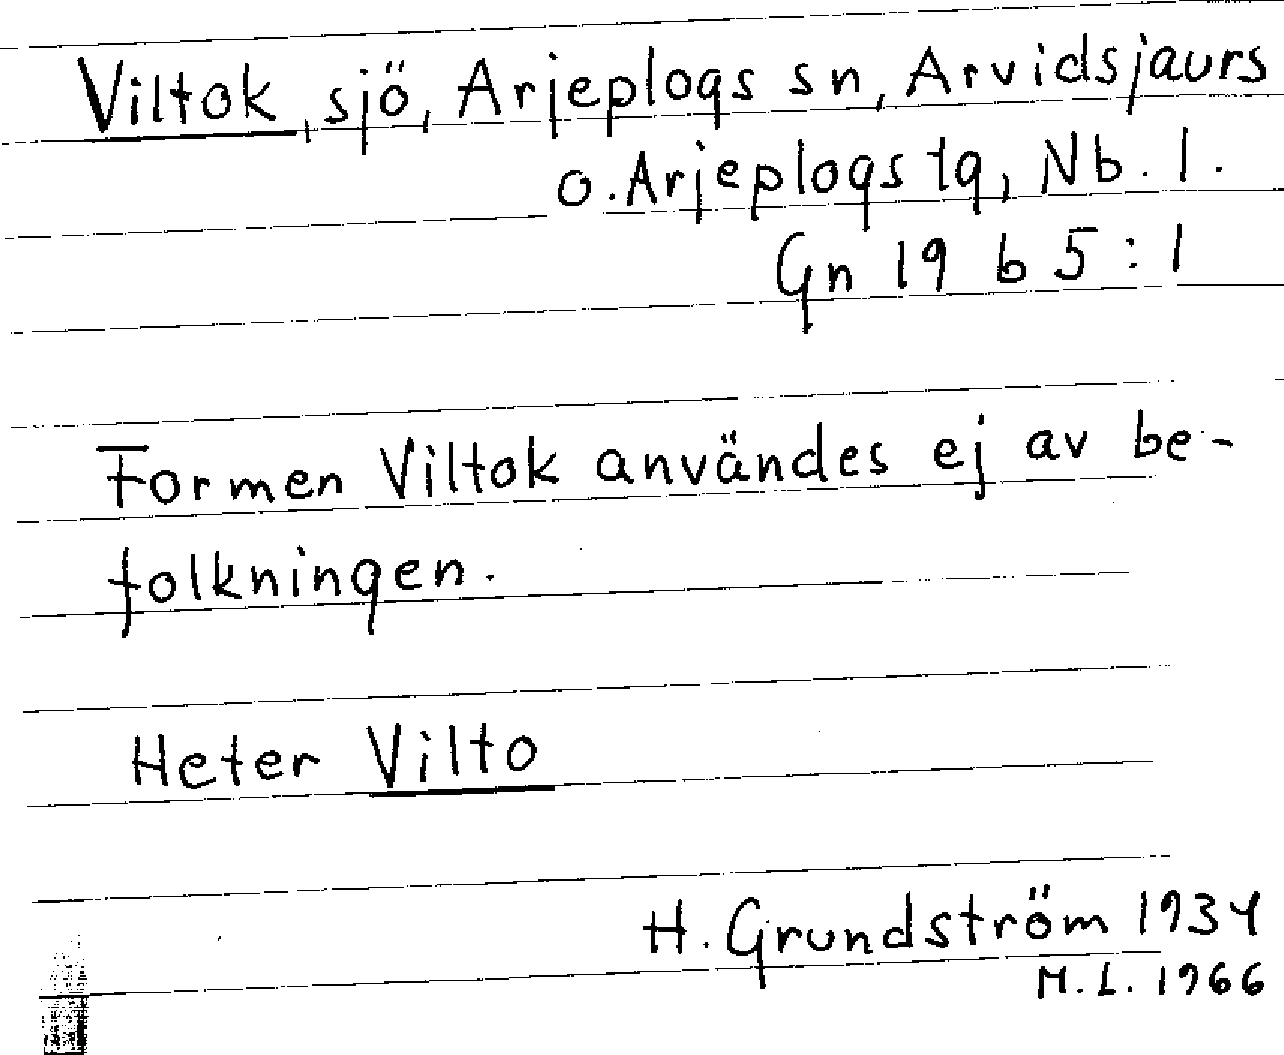 Viltok, sjö, Arjeplogs sn, Arvidsjaurs
o. Arjeplogs tg, Nb. l.
Gn 19 b 5:1
Formen Viltok användes ej av be-
folkningen.
Heter Vilto
H. Grundström 1934
M.L. 1966